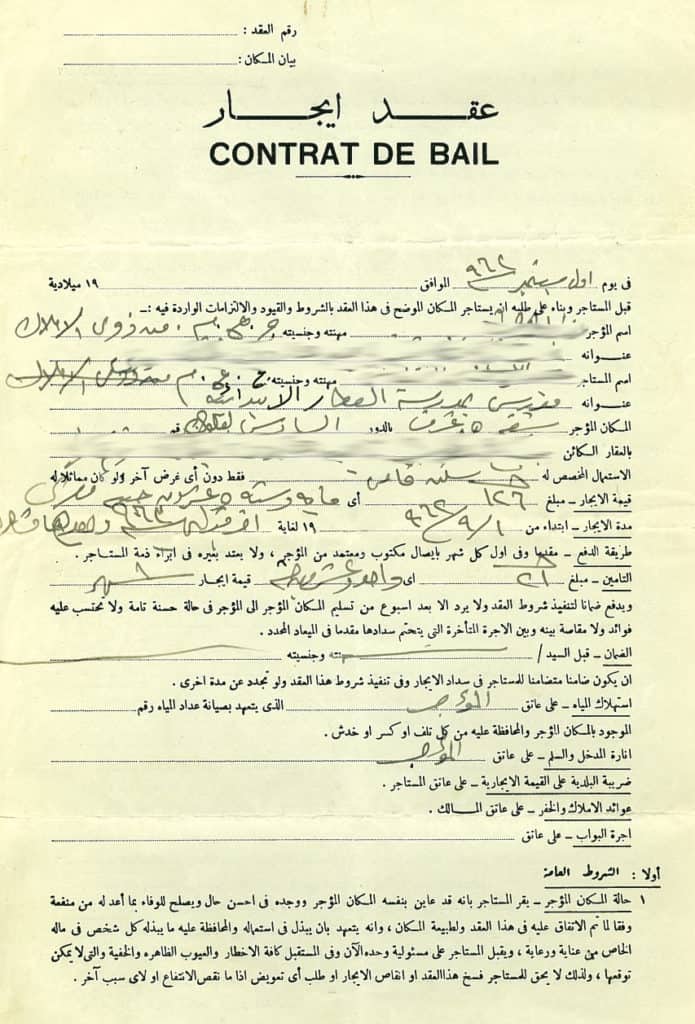 رقم العقد :
بيان المكان :
عقد ايجار
CONTRAT DE BAIL
فى يوم اول سبتمبر ٩٦٢ الموافق ١٩ ميلادية
قبل المستاجر وبناء على طلبه ان يستاجر المكان الموضح فى هذا العقد بالشروط والقيود والالتزامات الواردة فيه :ــ
اسم المؤجر مهنته وجنسيته من ذوى الاملاك
عنوانه
اسم المستاجر مهنته وجنسيته
عنوانه مدرس بمدرسة العطار الابتدائية
المكان المؤجر شقة ٥ غرف بالدور السادس
بالعقار الكائن
الاستعمال المخصص له سكن خاص فقط دون أى غرض آخر ولو كان مماثلا له
قيمة الايجار ــ مبلغ ١٢٦ أى مايه وسته وعشرون جنيه مصرى
مدة الايجار ــ ابتداء من ٩٦٢/٩/١ ١٩ لغاية
طريقة الدفع ــ مقدما وفى اول كل شهر بايصال مكتوب ومعتمد من المؤجر ، ولا يعتد بغيره فى ابراء ذمة المستاجر .
التامين ــ مبلغ ٢١ اى واحد وعشرون قيمة ايجار شهر
ويدفع ضمانا لتنفيذ شروط العقد ولا يرد الا بعد اسبوع من تسليم المكان المؤجر الى المؤجر فى حالة حسنة تامة ولا تحتسب عليه
فوائد ولا مقاصة بينه وبين الاجرة المتأخرة التى يتحتم سدادها مقدما فى الميعاد المحدد .
الضمان ــ قبل السيد / مهنته وجنسيته
ان يكون ضامنا متضامنا للمستاجر فى سداد الايجار وفى تنفيذ شروط هذا العقد ولو تجدد عن مدة اخرى .
استهلاك المياه ــ على عاتق المؤجر الذى يتعهد بصيانة عداد المياه رقم
الموجود بالمكان المؤجر والمحافظة عليه من كل تلف او كسر او خدش .
انارة المدخل والسلم ــ على عاتق المؤجر
ضريبة البلدية على القيمة الايجارية ــ على عاتق المستاجر .
عوائد الاملاك والخفر ــ على عاتق المالك .
اجرة البواب ــ على عاتق
أولا : الشروط العامة
١ حالة المكان المؤجر ــ يقر المستاجر بانه قد عاين بنفسه المكان المؤجر ووجده فى احسن حال ويصلح للوفاء بما أعد له من منفعة
وفقا لما تم الاتفاق عليه فى هذا العقد ولطبيعة المكان ، وانه يتعهد بان يبذل فى استعماله والمحافظة عليه ما يبذله كل شخص فى ماله
الخاص من عناية ورعاية ، ويقبل المستاجر على مسئولية وحده الآن وفى المستقبل كافة الاخطار والعيوب الظاهره والخفية والتى لا يمكن
توقعها ، ولذلك لا يحق للمستاجر فسخ هذا العقد او انقاص الايجار او طلب أى تعويض اذا ما نقص الانتفاع او لاى سبب آخر .